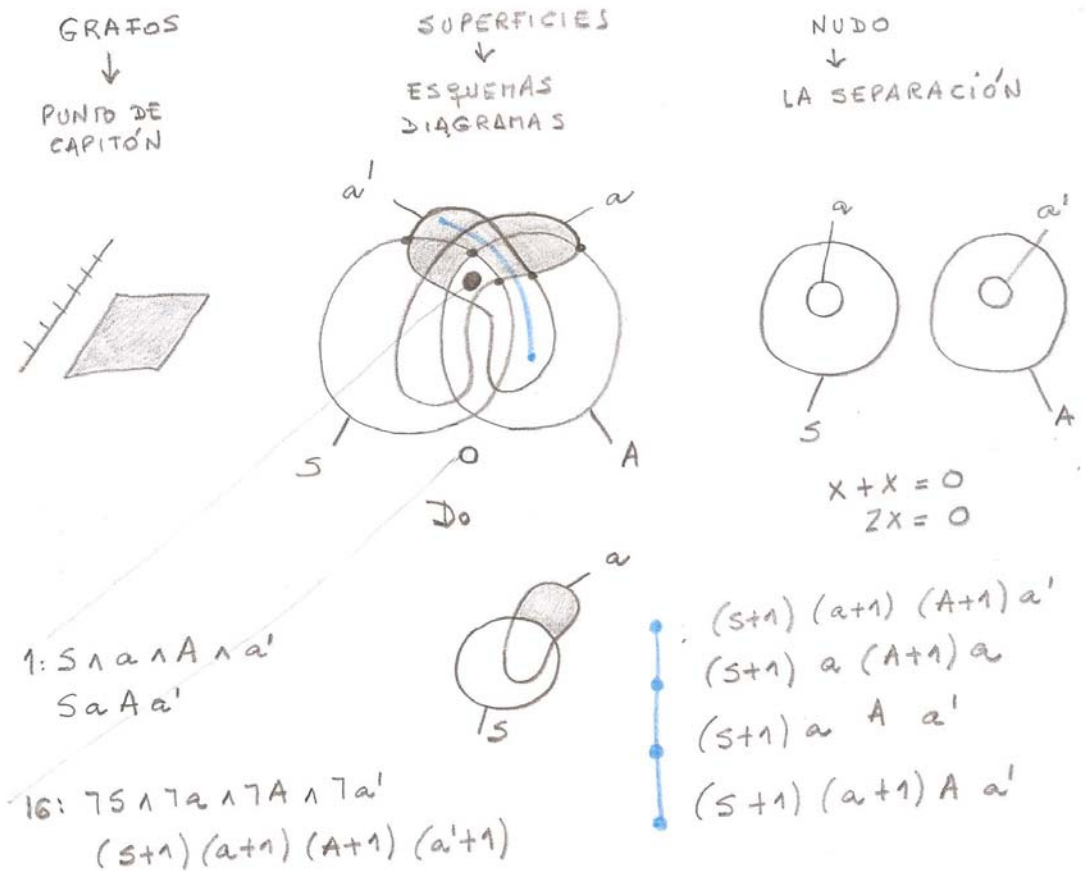 GRAFOS
↓
PUNTO DE
CAPITÓN
SUPERFICIES
↓
ESQUEMAS
DIAGRAMAS
NUDO
↓
LA SEPARACIÓN
a'
a
S
A
Do
a
S
a'
A
x + x = 0
2x = 0
a
S
1: S ∧ a ∧ A ∧ a'
S a A a'
16: ⌐S ∧ ⌐a ∧ ⌐A ∧ ⌐a'
(S+1) (a+1) (A+1) (a'+1)
(S+1) (a+1) (A+1) a'
(S+1) a (A+1) a
(S+1) a A a'
(S+1) (a+1) A a'